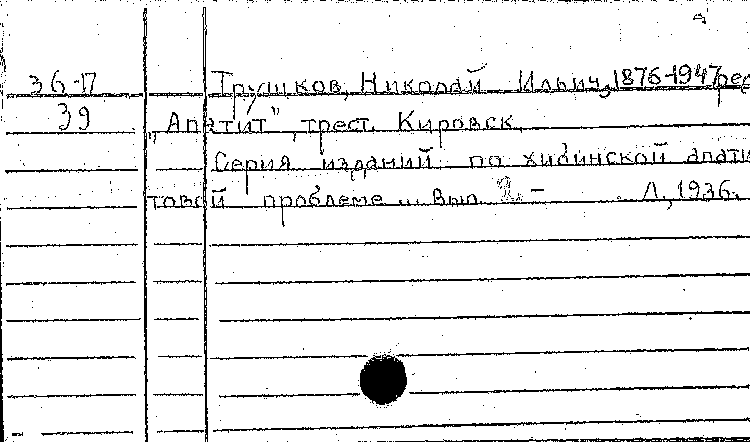 36-17 Трушков, Николай Ильич, 1876-1947 ред
39 „Апатит", трест. Кировск.
Серия изданий по хибинской апати
товой проблеме... Вып. 2. - Л., 1936.